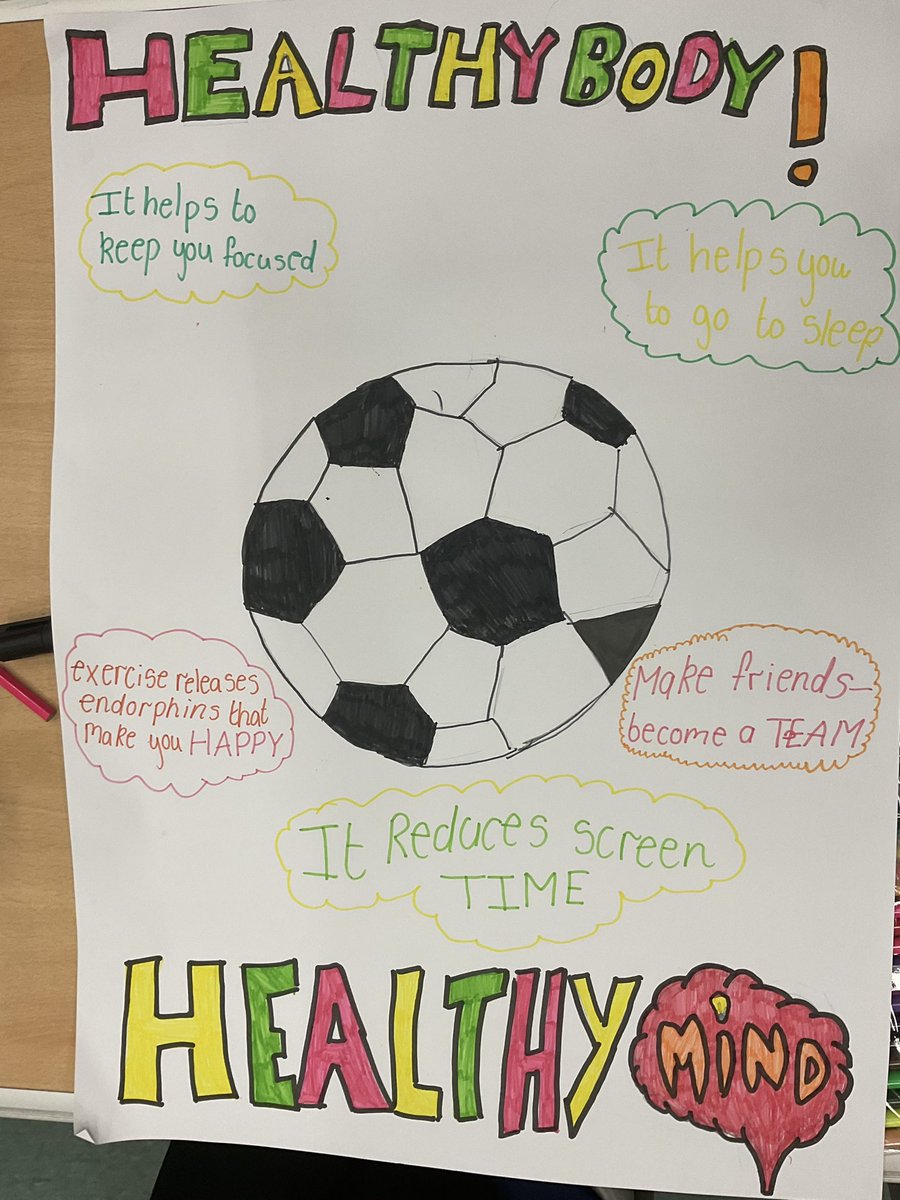 HEALTHY BODY!
It helps to
keep you focused
It helps you
to go to sleep
exercise releases
endorphins that
make you HAPPY
Make friends-
become a TEAM
It Reduces screen
TIME
HEALTHY MiND